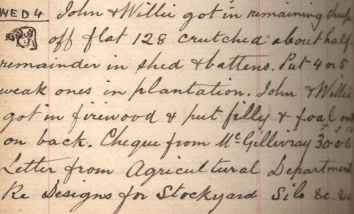 WED 4 John & Willie got in remaining sheep
off flat 128 crutched about half
remainder in shed & battens. Put 4 or 5
weak ones in plantation. John & Willie
got in firewood & put filly & foal out
on back. Cheque from McGillivray
Letter from Agricultural Department
Re Designs for Stockyard Silo &c.